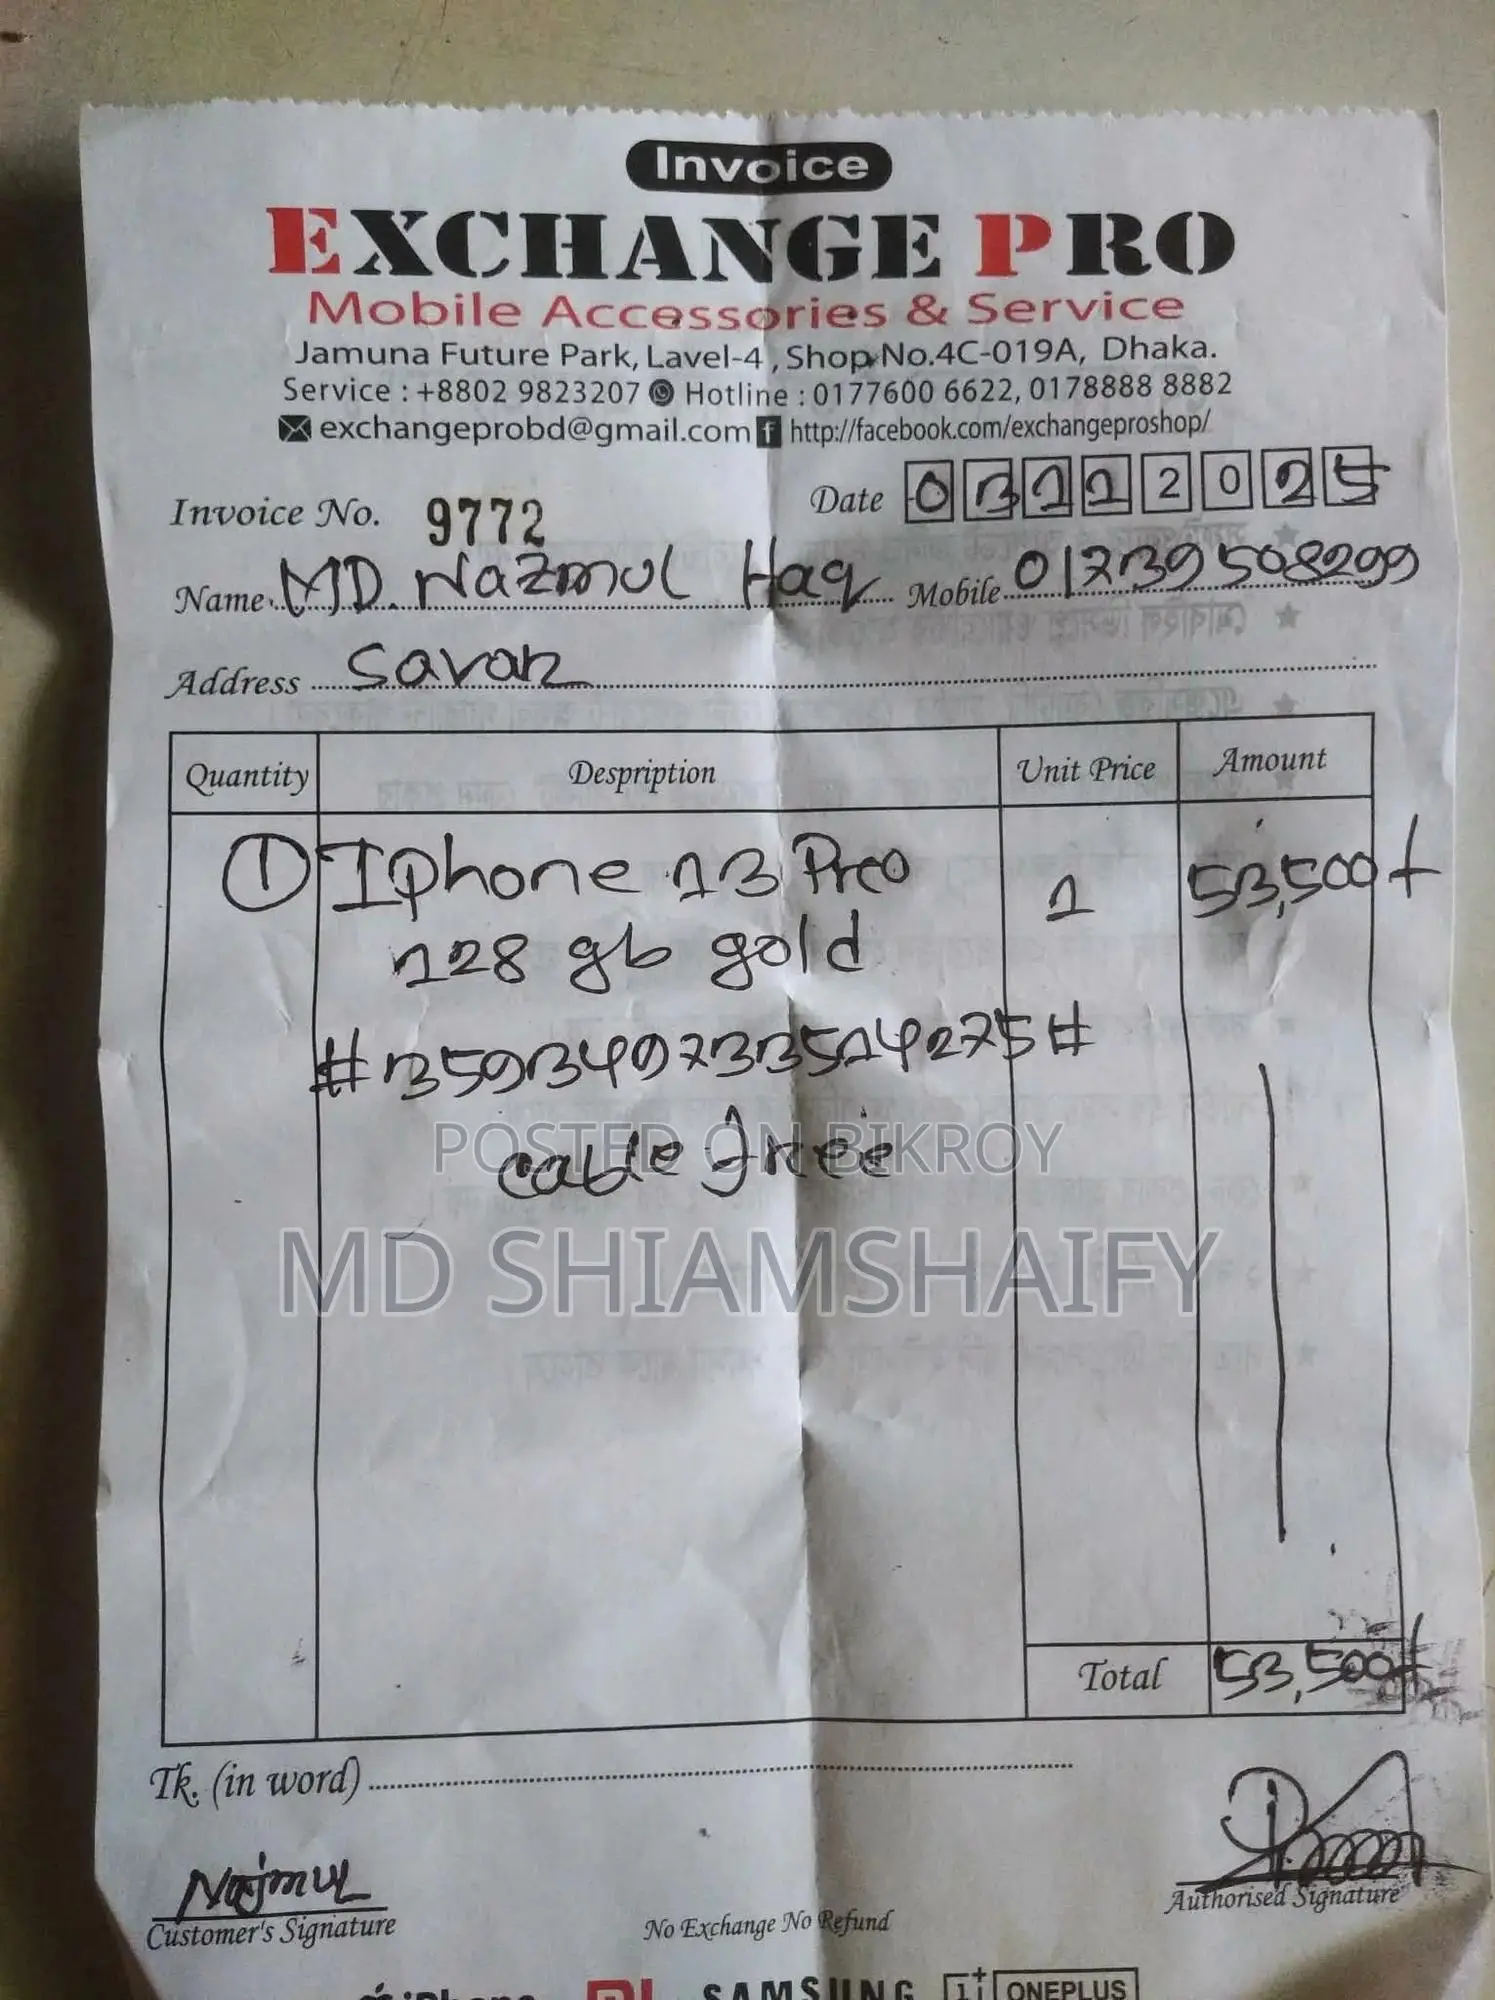 Invoice
EXCHANGE PRO
Mobile Accessories & Service
Jamuna Future Park, Lavel-4 , Shop No.4C-019A, Dhaka.
Service : +8802 9823207 Hotline : 0177600 6622, 0178888 8882
exchangeprobd@gmail.com http://facebook.com/exchangeproshop/
Invoice No. 9772 Date 03 11 2025
Name MD. Nazmul Haq Mobile 01739508299
Address Savar
Quantity Despription Unit Price Amount
① Iphone 13 Pro 1 53,500/-
128 gb gold
#359349733514275#
cable free
POSTED ON BIKROY
MD SHIAMSHAIFY
Total 53,500/-
Tk. (in word)
Najmul
Customer's Signature No Exchange No Refund Authorised Signature
iPhone MI SAMSUNG 1+ ONEPLUS